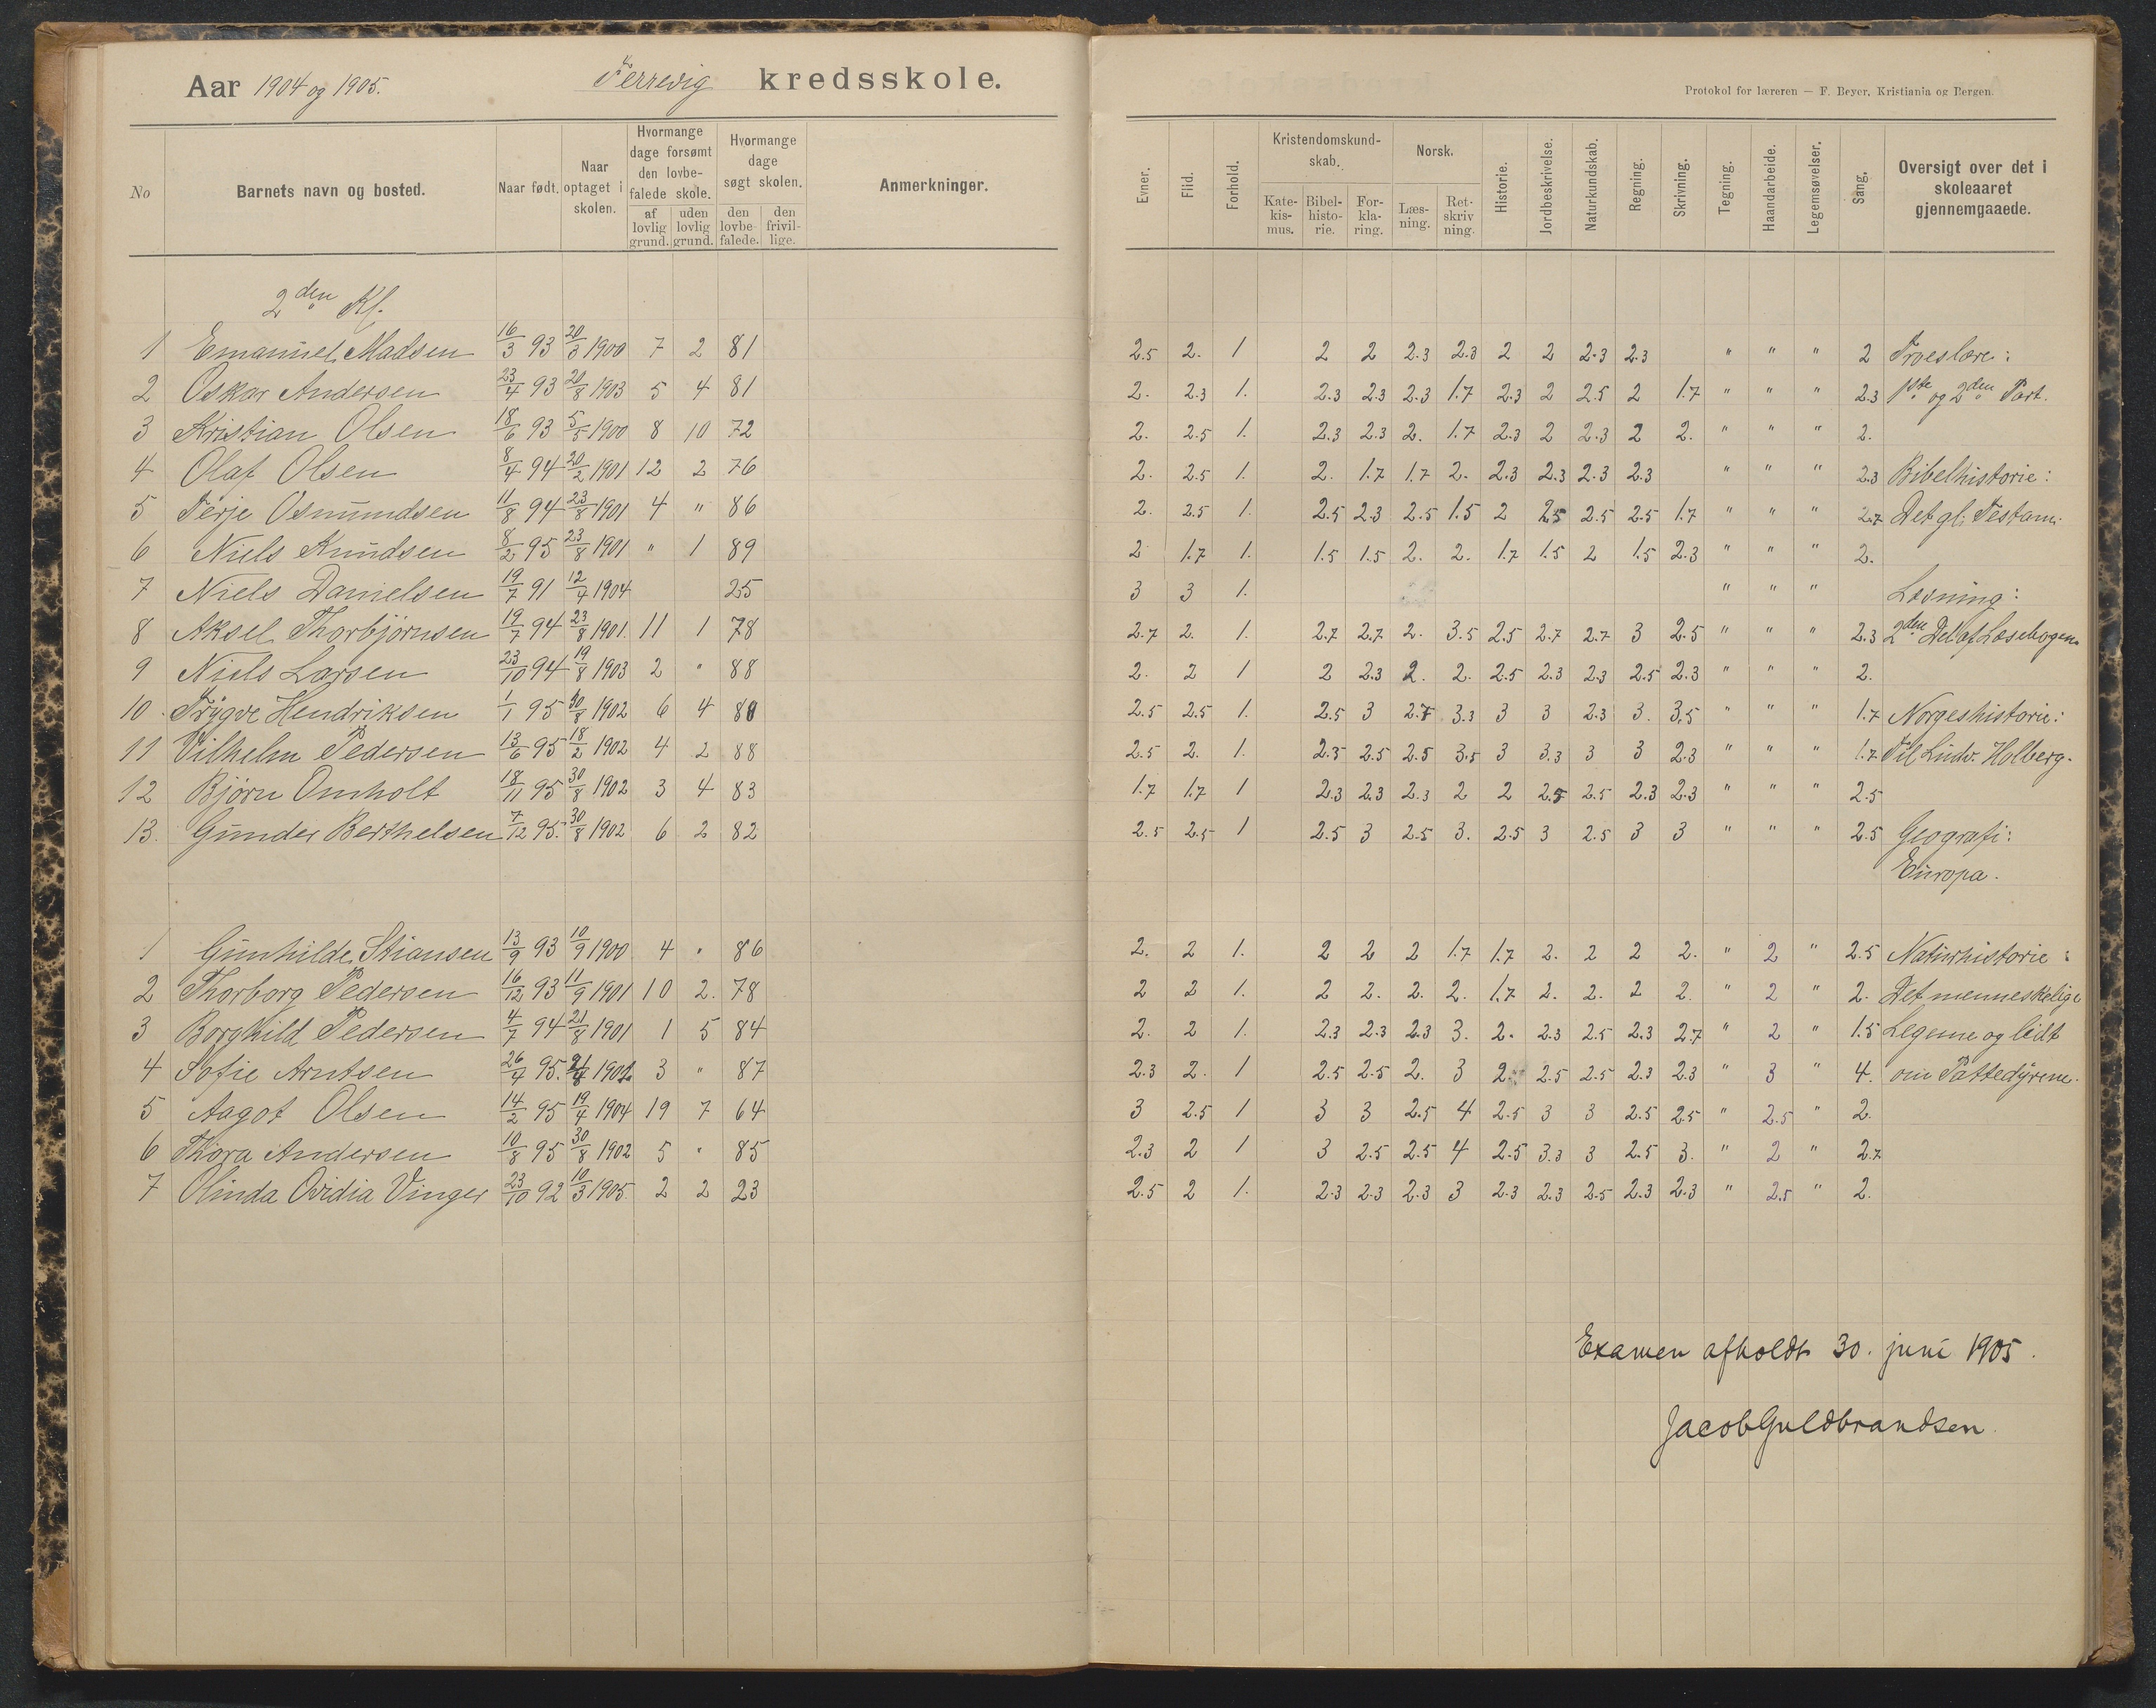 Aar 1904 og 1905.
Ferrevig kredsskole.
No
Barnets navn og bosted.
Naar født.
Naar optaget i skolen.
Hvormange dage forsømt den lovbefalede skole.
af lovlig grund.
uden lovlig grund.
Hvormange dage søgt skolen.
den lovbefalede.
den frivillige.
Anmerkninger.
2den Kl.
1 Emanuel Madsen 16/3 93 20/3 1900 7 2 81
2 Oskar Andersen 23/4 93 20/8 1903 5 4 81
3 Kristian Olsen 18/6 93 5/5 1900 8 10 72
4 Olaf Olsen 8/4 94 20/2 1901 12 2 76
5 Terje Osmundsen 11/8 94 23/8 1901 4 " 86
6 Niels Knudsen 8/2 95 23/8 1901 " 1 89
7 Niels Danielsen 19/7 91 12/4 1904 25
8 Aksel Thorbjørnsen 19/7 94 23/8 1901. 11 1 78
9 Niels Larsen 23/10 94 19/8 1903 2 " 88
10. Trygve Hendriksen 1/1 95 30/8 1902 6 4 80
11 Vilhelm Pedersen 13/6 95 18/2 1902 4 2 88
12 Bjørn Omholt 18/11 95 30/8 1902 3 4 83
13. Gunder Berthelsen 7/12 95. 30/8 1902 6 2 82
1 Gunhilde Stiansen 13/9 93 10/9 1900 4 " 86
2 Thorborg Pedersen 16/12 93 11/9 1901 10 2. 78
3 Borghild Pedersen 4/7 94 21/8 1901 1 5 84
4 Sofie Arntsen 26/4 95. 3 " 87
5 Aagot Olsen 14/2 95 19/4 1904 19 7 64
6 Thora Andersen 10/8 95 30/8 1902 5 " 85
7 Olinda Ovidia Vinger 23/10 92 10/3 1905. 2 2 23
Protokol for læreren — F. Beyer, Kristiania og Bergen.
Evner.
Flid.
Forhold.
Kristendomskundskab.
Katekismus.
Bibelhistorie.
Forklaring.
Norsk.
Læsning.
Retskrivning.
Historie.
Jordbeskrivelse.
Naturkundskab.
Regning.
Skrivning.
Tegning.
Haandarbeide.
Legemsøvelser.
Sang.
Oversigt over det i skoleaaret gjennemgaaede.
2.5 2. 1 2 2 2.3 2.3 2 2 2.3 2.3 " " " 2 Troeslære:
2. 2.3 1. 2.3 2.3 2.3 1.7 2.3 2 2.5 2 1.7 " " " 2.3 1ste og 2den Part.
2. 2.5 1. 2.3 2.3 2. 1.7 2.3 2 2.3 2 2. " " " 2.
2. 2.5 1. 2. 1.7 1.7 2. 2.3 2.3 2.3 2.3 " " " 2.3 Bibelhistorie:
2. 2.5 1. 2.5 2.3 2.5 1.5 2 2.5 2.5 2.5 1.7 " " " 2.7 Det gl. Testam.
2 1.7 1. 1.5 1.5 2. 2. 1.7 1.5 2 1.5 2.3 " " " 2.
3 3 1. " " " Læsning:
2.7 2. 1. 2.7 2.7 2. 3.5 2.5 2.7 2.7 3 2.5 " " " 2.3 2den Del af Læsebogen
2. 2 1 2 2.3 2. 2. 2.5 2.3 2.3 2.5 2.3 " " " 2.
2.5 2.5 1. 2.5 3 2.7 3.3 3 3 2.3 3. 3.5 " " " 1.7 Norgeshistorie:
2.5 2. 1. 2.3 2.5 2.5 3.5 3 3.3 3 3 2.3 " " " 1.7 Til Ludv. Holberg.
1.7 1.7 1 2.3 2.3 2.3 2 2 2.5 2.5 2.3 2.3 " " " 2.5
2.5 2.5 1 2.5 3 2.5 3. 2.5 3 2.5 3 3 " " " 2.5 Geografi:
Europa.
2. 2 1. 2 2 2 1.7 1.7 2. 2 2 2. " 2 " 2.5 Naturhistorie:
2 2 1. 2 2. 2. 2. 1.7 2. 2. 2 2. " 2 " 2. Det menneskelige
2. 2 1. 2.3 2.3 2.3 3. 2. 2.3 2.5 2.3 2.7 " 2 " 1.5 Legeme og lidt
2.3 2. 1 2.5 2.5 2. 3 2 2.5 2.5 2.3 2.3 " 3 " 4. om Pattedyrene.
3 2.5 1 3 3 2.5 4 2.5 3 3 2.5 2.5 " 2.5 " 2.
2.3 2 1 3 2.5 2.5 4 2.5 3.3 3 2.5 3. " 2 " 2.7
2.5 2 1. 2.3 2.3 2.3 3 2.3 2.3 2.5 2.3 2.3 " 2.5 " 2.
Examen afholdt 30. juni 1905.
Jacob Guldbrandsen.